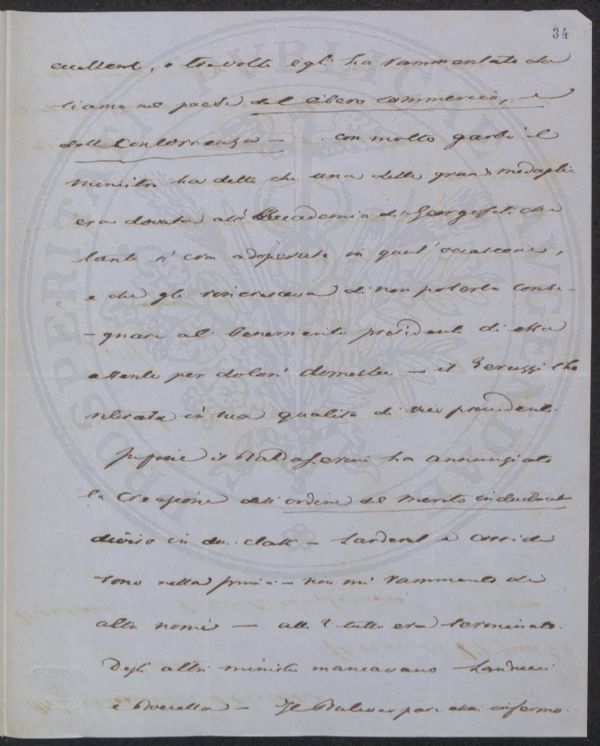 34
eccellente, e tre volte egli ha rammentato che
siamo nel paese del libero commercio, e
della Concorrenza — con molto garbo il
Ministro ha detto che una delle grandi medaglie
era dovuta all'Accademia de Georgofili che
tanto si era adoperata in quest'occasione,
e che gli rincresceva di non poterla conse-
-gnare al benemerito presidente di essa
assente per dolori domestici — il Peruzzi l'ha
ritirata in sua qualità di vice presidente.
Infine il Baldasseroni ha annunziato
la creazione dell'ordine del merito industriale
diviso in due classi — Larderel e Corridi
sono nella prima — non mi rammento di
altri nomi — alle 2 tutto era terminato.
Degli altri ministri mancavano Landucci
e Boccella — Il infermo.
PROSPERITATI PUBLICAE AUGENDAE